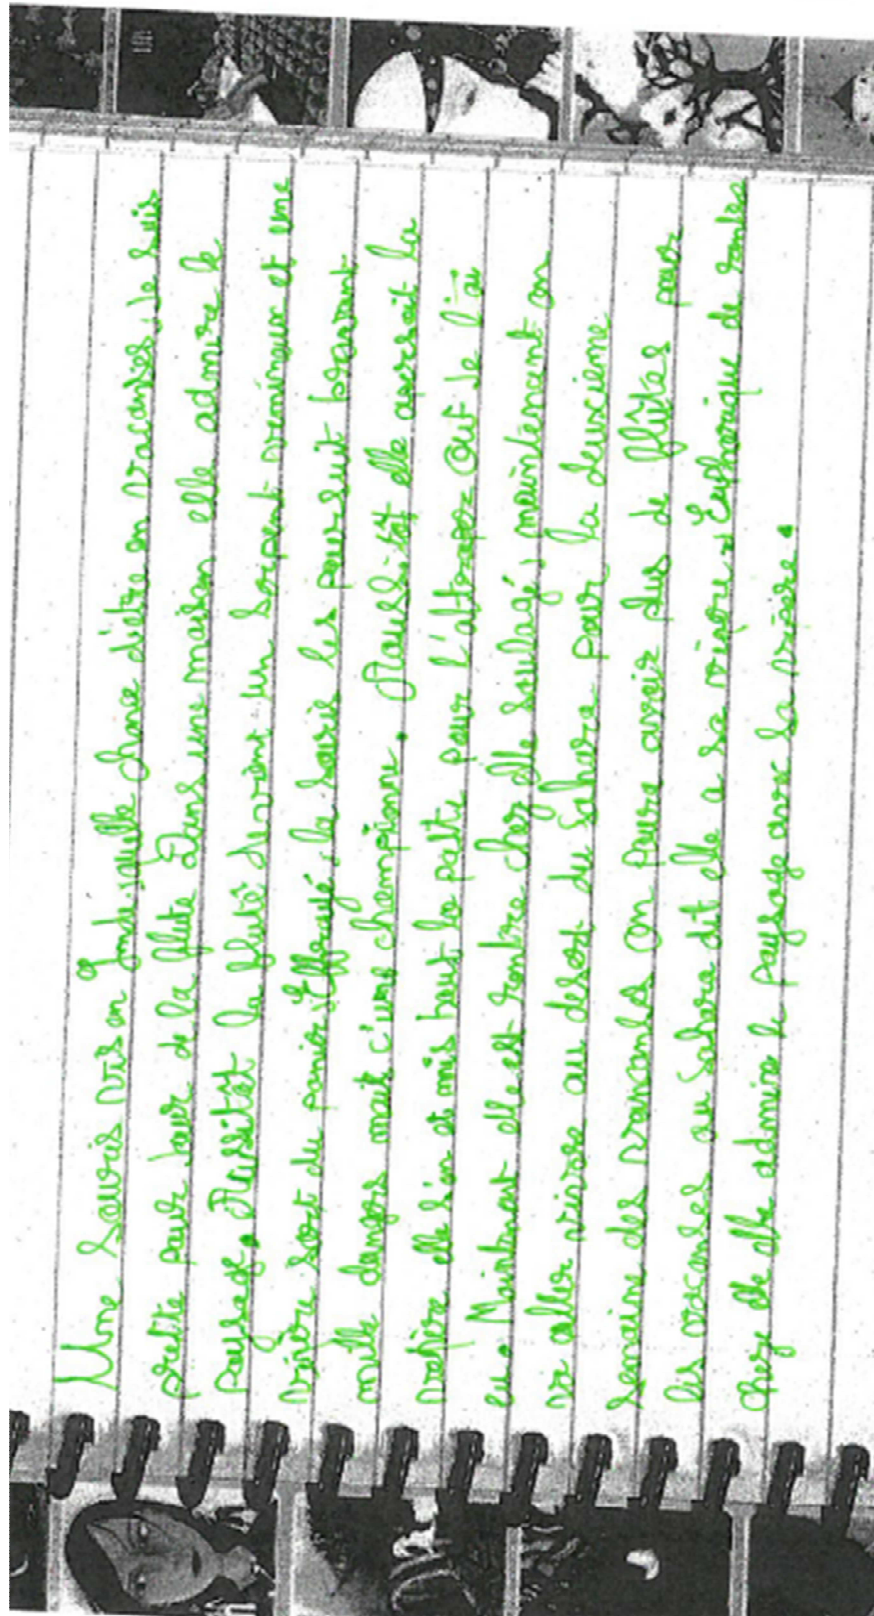 Une Souris vis en Inde, quelle chance d'etre en vacances, Je suis
prette pour jouer de la flute Dans une maison elle admire le
paysage. Aussitôt la flutê devient un serpent venimeux et une
vipère sort du panier. Effrayé, la souris les poursuit bravant
mille dangers mait c'une championne. Aausi-tôt elle apersoit la
vahpère elle s'en et mis haut la patte pour l'attraper Ouf Je l'ai
eu. Maintenant elle est rentrée chez elle soulagé, maintenant on
va aller vivre au desert du Sahara pour la deuxcième
Semaine des vancanses on poura avoir plus de flûtes pour
lés vacanses au Sahara dit elle a sa vipère. Euphorique de rentés
Cheze elle elle admire le paysage avec la vipère.